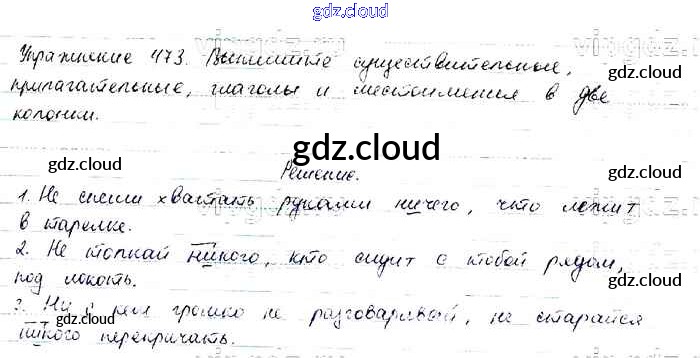 gdz.cloud
Упражнение 473. Выпишите существительные,
gdz.cloud
прилагательные, глаголы и местоимения в две
колонки.
gdz.cloud
gdz.cloud
gdz.cloud
Решение.
gdz.cloud
1. Не спеши хватать руками ничего, что лежит
в тарелке.
2. Не толкай никого, кто сидит с тобой рядом,
под локоть.
gdz.cloud
3. Ни с кем громко не разговаривай, не старайся
gdz.cloud
gdz.cloud
никого перекричать.